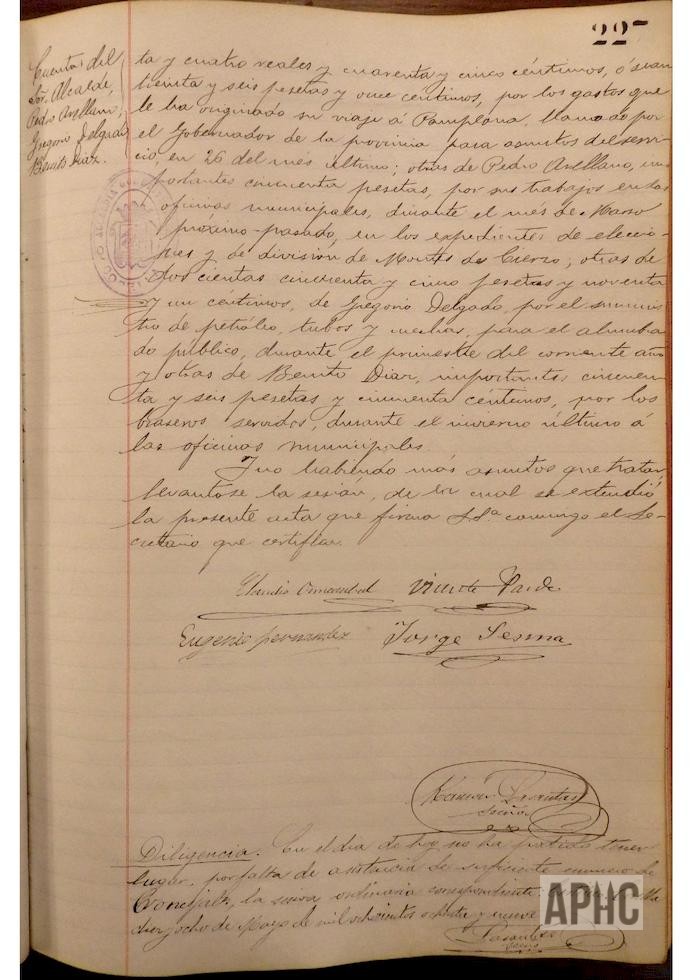 22
Cuentas del
Sor. Alcalde,
Pedro Arellano,
Gregorio Delgado
Benito Diaz.
ta y cuatro reales y cuarenta y cinco céntimos, ó sean
treinta y seis pesetas y once centimos, por los gastos que
le ha originado su viaje á Pamplona, llamado por
el Gobernador de la provincia para asuntos del servi-
cio, en 26 del mes último; otras de Pedro Arellano, im-
portantes cincuenta pesetas, por sus trabajos en las
oficinas municipales, durante el mes de Marzo
próximo-pasado, en los expedientes de eleccio-
nes y de división de Montes de Cierzo; otras de
dos cientas cincuenta y cinco pesetas y noventa
y un centimos, de Gregorio Delgado, por el suminis
tro de petróleo, tubos y mechas, para el alumbra
do público, durante el primestre del corriente año
y otras de Benito Diaz, importantes cincuen-
ta y seis pesetas y cincuenta centimos, por los
braseros servidos, durante el invierno último á
las oficinas municipales.
Y no habiendo más asuntos que tratar,
levantose la sesión, de la cual se extendió
la presente acta que firma S.Sª conmigo el Se-
cretario que certifico.
Claudio Vicente
Eugenio Fernandez Jorge Sesma
Ramón
Diligencia. En el día de hoy no ha podido tener
lugar, por falta de asistencia de suficiente numero de
Concejales, la sesion ordinaria correspondiente
diez y ocho de Mayo de mil ochocientos ochenta y nueve
APHC